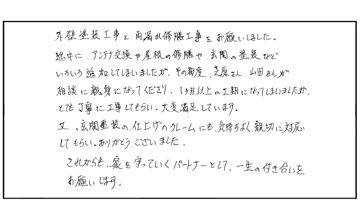 外壁塗装工事と雨漏れ修膳工事をお願いしました。
途中に、アンテナ交換や屋根の修膳や、玄関の塗装など
いろいろ追加してしまいましたが、その都度、芝原さん、山田さんが
相談に親身になってくださり、1ヶ月以上の工期になってしまいましたが、
とても丁寧に工事してもらい、大変満足しています。
又、玄関塗装の、仕上げのクレームにも、気持ちよく、親切に対応
してもらい、ありがとうございました。
これからも、家を守っていくパートナーとして、一生の付き合いを
お願いします。